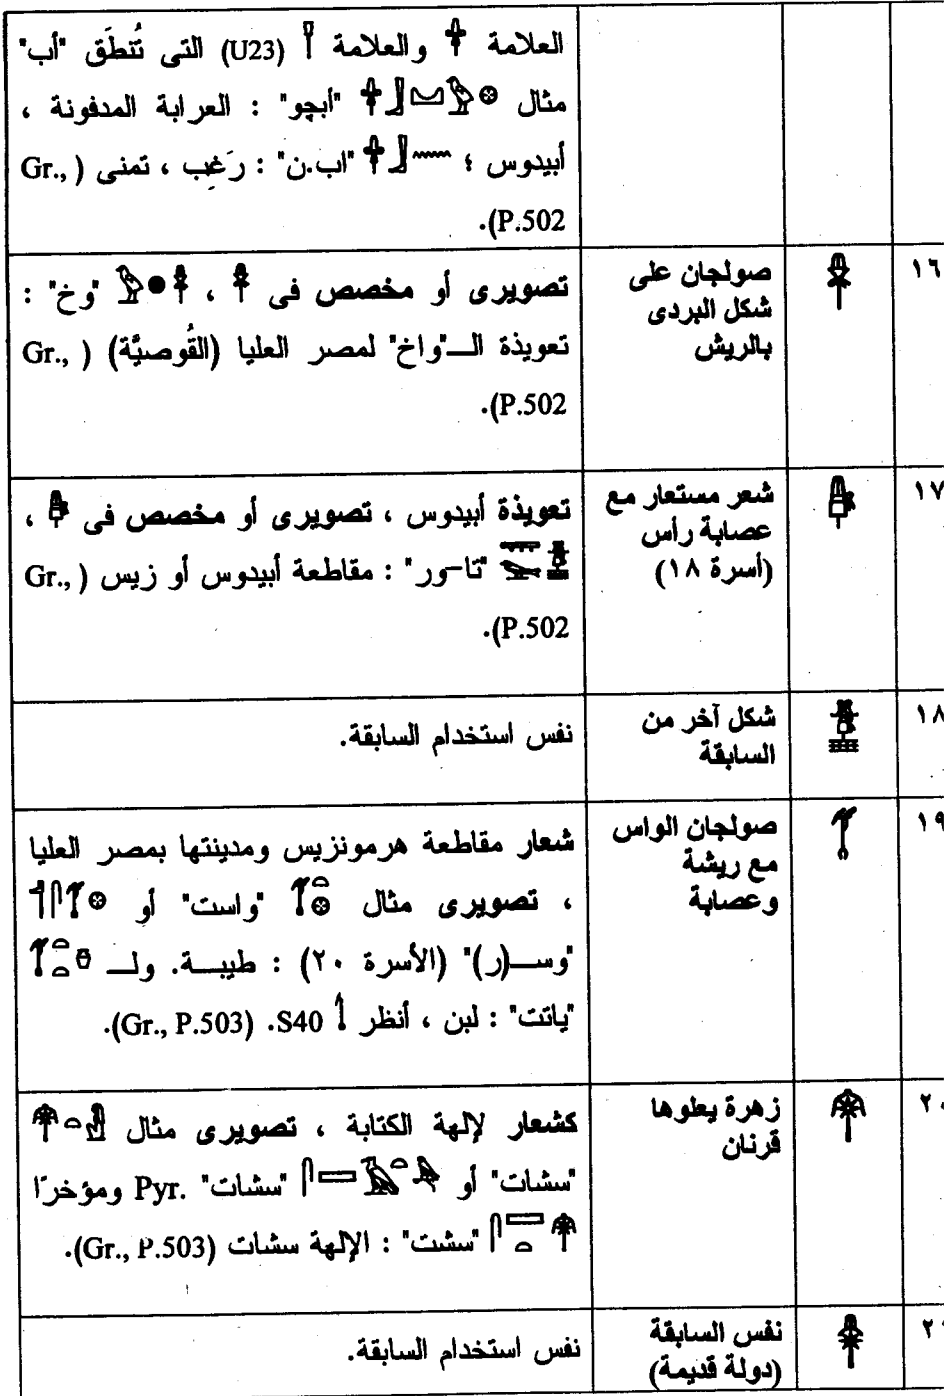 العلامة 𓋪 والعلامة 𓍋 (U23) التى تُنطَق "أب"
مثال "أبچو" : العرابة المدفونة ،
أبيدوس ؛ "اب.ن" : رَغِب ، تمنى (Gr.,
P.502).
١٦
صولجان على
شكل البردى
بالريش
تصويرى أو مخصص فى ، "وخ" :
تعويذة الــ"واخ" لمصر العليا (القُوصيَّة) (Gr.,
P.502).
١٧
شعر مستعار مع
عصابة رأس
(أسرة ١٨)
تعويذة أبيدوس ، تصويرى أو مخصص فى ،
"تا-ور" : مقاطعة أبيدوس أو زيس (Gr.,
P.502).
١٨
شكل آخر من
السابقة
نفس استخدام السابقة.
١٩
صولجان الواس
مع ريشة
وعصابة
شعار مقاطعة هرمونزيس ومدينتها بمصر العليا
، تصويرى مثال "واست" أو
"وســ(ر)" (الأسرة ٢٠) : طيبــة. ولــ
"ياتت" : لبن ، أنظر S40. (Gr., P.503).
٢٠
زهرة يعلوها
قرنان
كشعار لإلهة الكتابة ، تصويرى مثال
"سشات" أو "سشات" Pyr. ومؤخرًا
"سشت" : الإلهة سشات (Gr., P.503).
نفس السابقة
(دولة قديمة)
نفس استخدام السابقة.